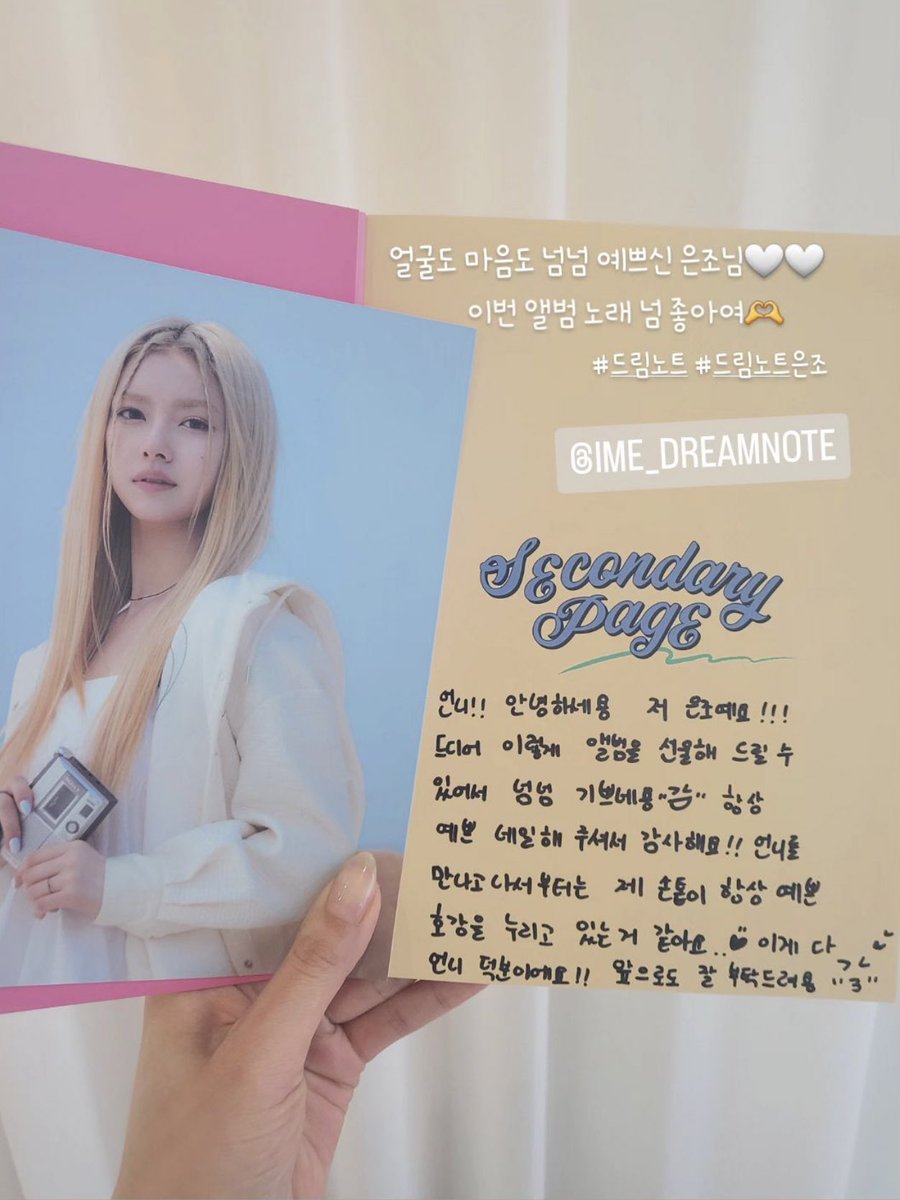 얼굴도 마음도 넘넘 예쁘신 은조님🤍🤍
이번 앨범 노래 넘 좋아여🫶
#드림노트 #드림노트은조
@IME_DREAMNOTE
SEcondary
PagE
언니!! 안녕하세용 저 은조예요!!!
드디어 이렇게 앨범을 선물해 드릴 수
있어서 넘넘 기쁘네용 항상
예쁜 네일해 주셔서 감사해요!! 언니를
만나고 나서부터는 제 손톱이 항상 예쁜
호강을 누리고 있는거 같아요.. 이게 다
언니 덕분이에요!! 앞으로도 잘 부탁드려용